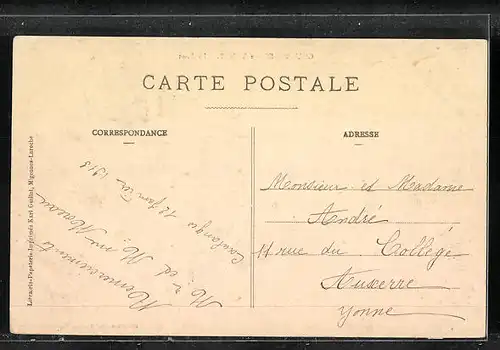 CARTE POSTALE
CORRESPONDANCE
Coulanges 12 Janvier 1913
Mr et Mme Moreau
Remerciements
ADRESSE
Monsieur et Madame
André
11 rue du Collège
Auxerre
Yonne
Librairie-Papeterie-Imprimée Karl Guillot, Migennes-Laroche